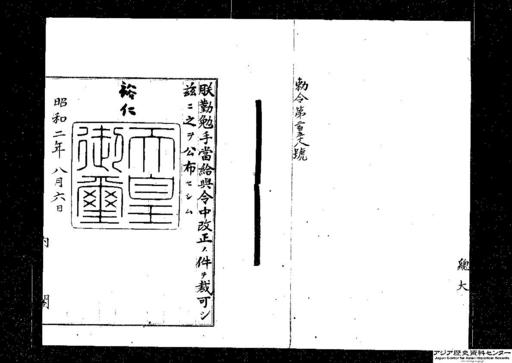 勅令第
號
朕勤勉手當給與令中改正ノ件ヲ裁可シ
茲ニ之ヲ公布セシム
裕仁
天皇
御璽
昭和二年八月六日
内閣
總
大
アジア歴史資料センター
Japan Center for Asian Historical Records